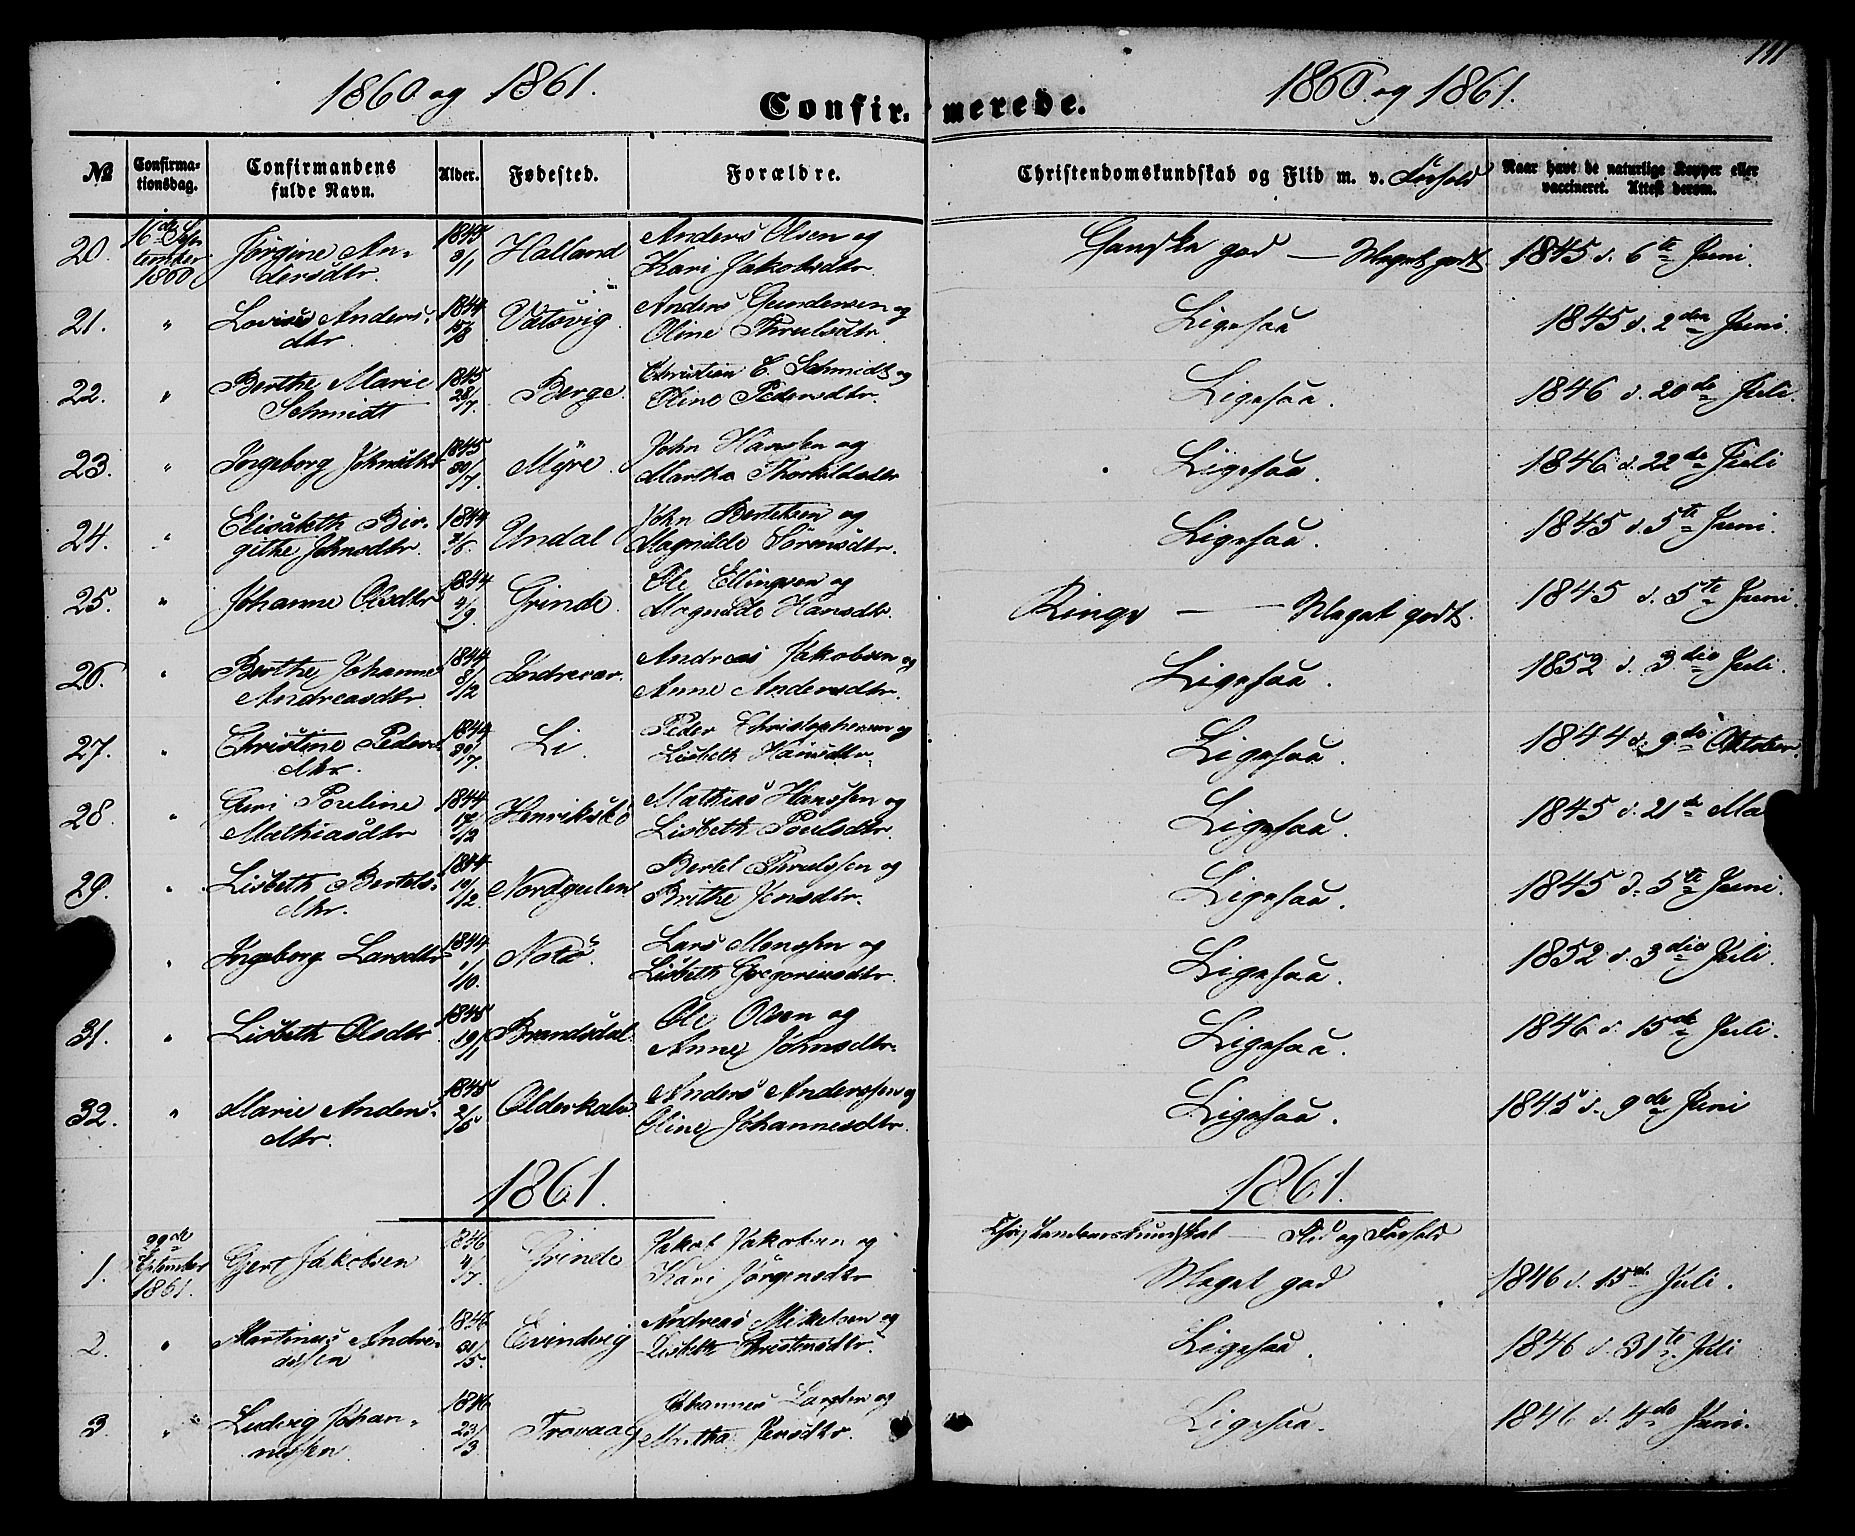 111
1860 og 1861. 1860 og 1861.
Confirmerede.
№ Confirmationsdag. Confirmandens fulde Navn. Alder. Fødested. Forældre. Christendomskundskab og Flid m. v. Forhold Naar havt de naturlige Kopper eller vaccineret. Attest derom.
20. 16de September 1860 Jørgine Andersdtr. 1845 9/1 Halland Anders Olsen og Kari Jakobsdtr. Ganske god — Meget godt 1845 d. 6te Juni.
21. " Lovise Andersdtr. 1844 Vatsvig Anders Gundersen og Oline Thrulsdtr. Ligesaa 1845 d. 2den Juni.
22. " Berthe Marie Schmidt 1845 28/7. Berge Christian C. Schmidt og Oline Pedersdtr. Ligesaa. 1846 d. 20de Juli.
23. " Ingeborg Johnsdtr 1845 30/7. Myre. John Hansen og Martha Thorkildsdtr Ligesaa. 1846 d. 22de Juli
24. " Elisabeth Birgithe Johnsdtr. 1844 Undal John Bertelsen og Magnilde Sørensdtr. Ligesaa. 1845 d. 5te Juni.
25. " Johanne Olsdtr 1844 4/9. Grinde. Ole Ellingsen og Magnilde Hansdtr. Ringe — — Meget godt. 1845 d. 5te Juni.
26. " Berthe Johanne Andreasdtr. 1844 8/12 Indrevær. Andreas Jakobsen og Anne Andersdtr. Ligesaa. 1852 d. 3die Juli.
27. " Christine Pedersdtr. 1844 30/7. Li. Peder Christophersen og Lisbeth Hansdtr. Ligesaa. 1844 d. 9de Oktober.
28. " Guri Pouline Mathiasdtr 1844 17/12 Henriksbø Mathias Hanssen og Lisbeth Poulsdtr. Ligesaa. 1845 d. 21de Ma
29. " Lisbeth Bertelsdtr. 1844 19/12. Nordgulen Bertel Thrulssen og Brithe Jensdtr. Ligesaa. 1845 d. 5te Juni.
" Ingeborg Larsdtr 1844 1/10. Notø. Lars Monssen og Lisbeth Gregoriusdtr. Ligesaa. 1852 d. 3die Juli.
31. " Lisbeth Olsdtr. 1845 19/1 Brandsdal Ole Olsen og Anne Johnsdtr. Ligesaa. 1846 d. 15de Juli.
32. " Marie Andersdtr. 1845 2/5 Olderkalv Anders Anderssen og Oline Johannesdtr. Ligesaa. 1845 d. 9de Juni
1861. 1861.
Christendomskundskab — Flid og Forhold
1. 22de September 1861. Gjert Jakobsen 1846 4/7. Grinde Jakob Jakobsen og Kari Jørgensdtr Meget god 1846 d. 15de Juli.
2. " Martinus Andreassen 1846 Evindvig Andreas Mikelsen og Lisbeth Christensdtr. Ligesaa. 1846 d. 31te Juli
3. " Ludvig Johannessen. 1846 23/3. Trovaag Johannes Larsen og Martha Jensdtr. Ligesaa. 1846 d. 4de Juni.